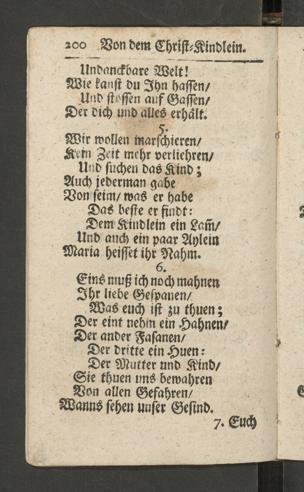 200 Von dem Christ-Kindlein.
Undanckbare Welt!
Wie kanst du Ihn hassen/
Und stossen auf Gassen/
Der dich und alles erhält.
5.
Wir wollen marschieren/
Kein Zeit mehr verliehren/
Und suchen das Kind;
Auch jederman gabe
Von seim/ was er habe
Das beste er findt:
Dem Kindlein ein Lam̃/
Und auch ein paar Aylein
Maria heisset ihr Nahm.
6.
Eins muß ich noch mahnen
Ihr liebe Gespanen/
Was euch ist zu thuen;
Der eint nehm ein Hahnen/
Der ander Fasanen/
Der dritte ein Huen:
Der Mutter und Kind/
Sie thuen uns bewahren
Von allen Gefahren/
Wanns sehen unser Gesind.
7. Euch